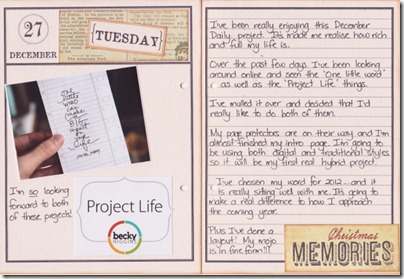 27
DECEMBER
TUESDAY
one
little
word
can
make
a
BIG
impact
on
my
life
I'm so looking
forward to both
of these projects!
Project Life
becky
HIGGINS
I've been really enjoying this December
Daily project. It's made me realise how rich
and full my life is.
Over the past few days I've been looking
around online and seen the 'One little word'
as well as the 'Project Life' things.
I've mulled it over and decided that I'd
really like to do both of them.
My page protectors are on their way and I'm
almost finished my intro page. I'm going to
be using both digital and traditional styles
so it will be my first real hybrid project.
I've chosen my word for 2012 and it
is really sitting well with me. It's going to
make a real difference to how I approach
the coming year.
Plus I've done a
layout! My mojo
is in fine form!!!
Christmas
MEMORIES